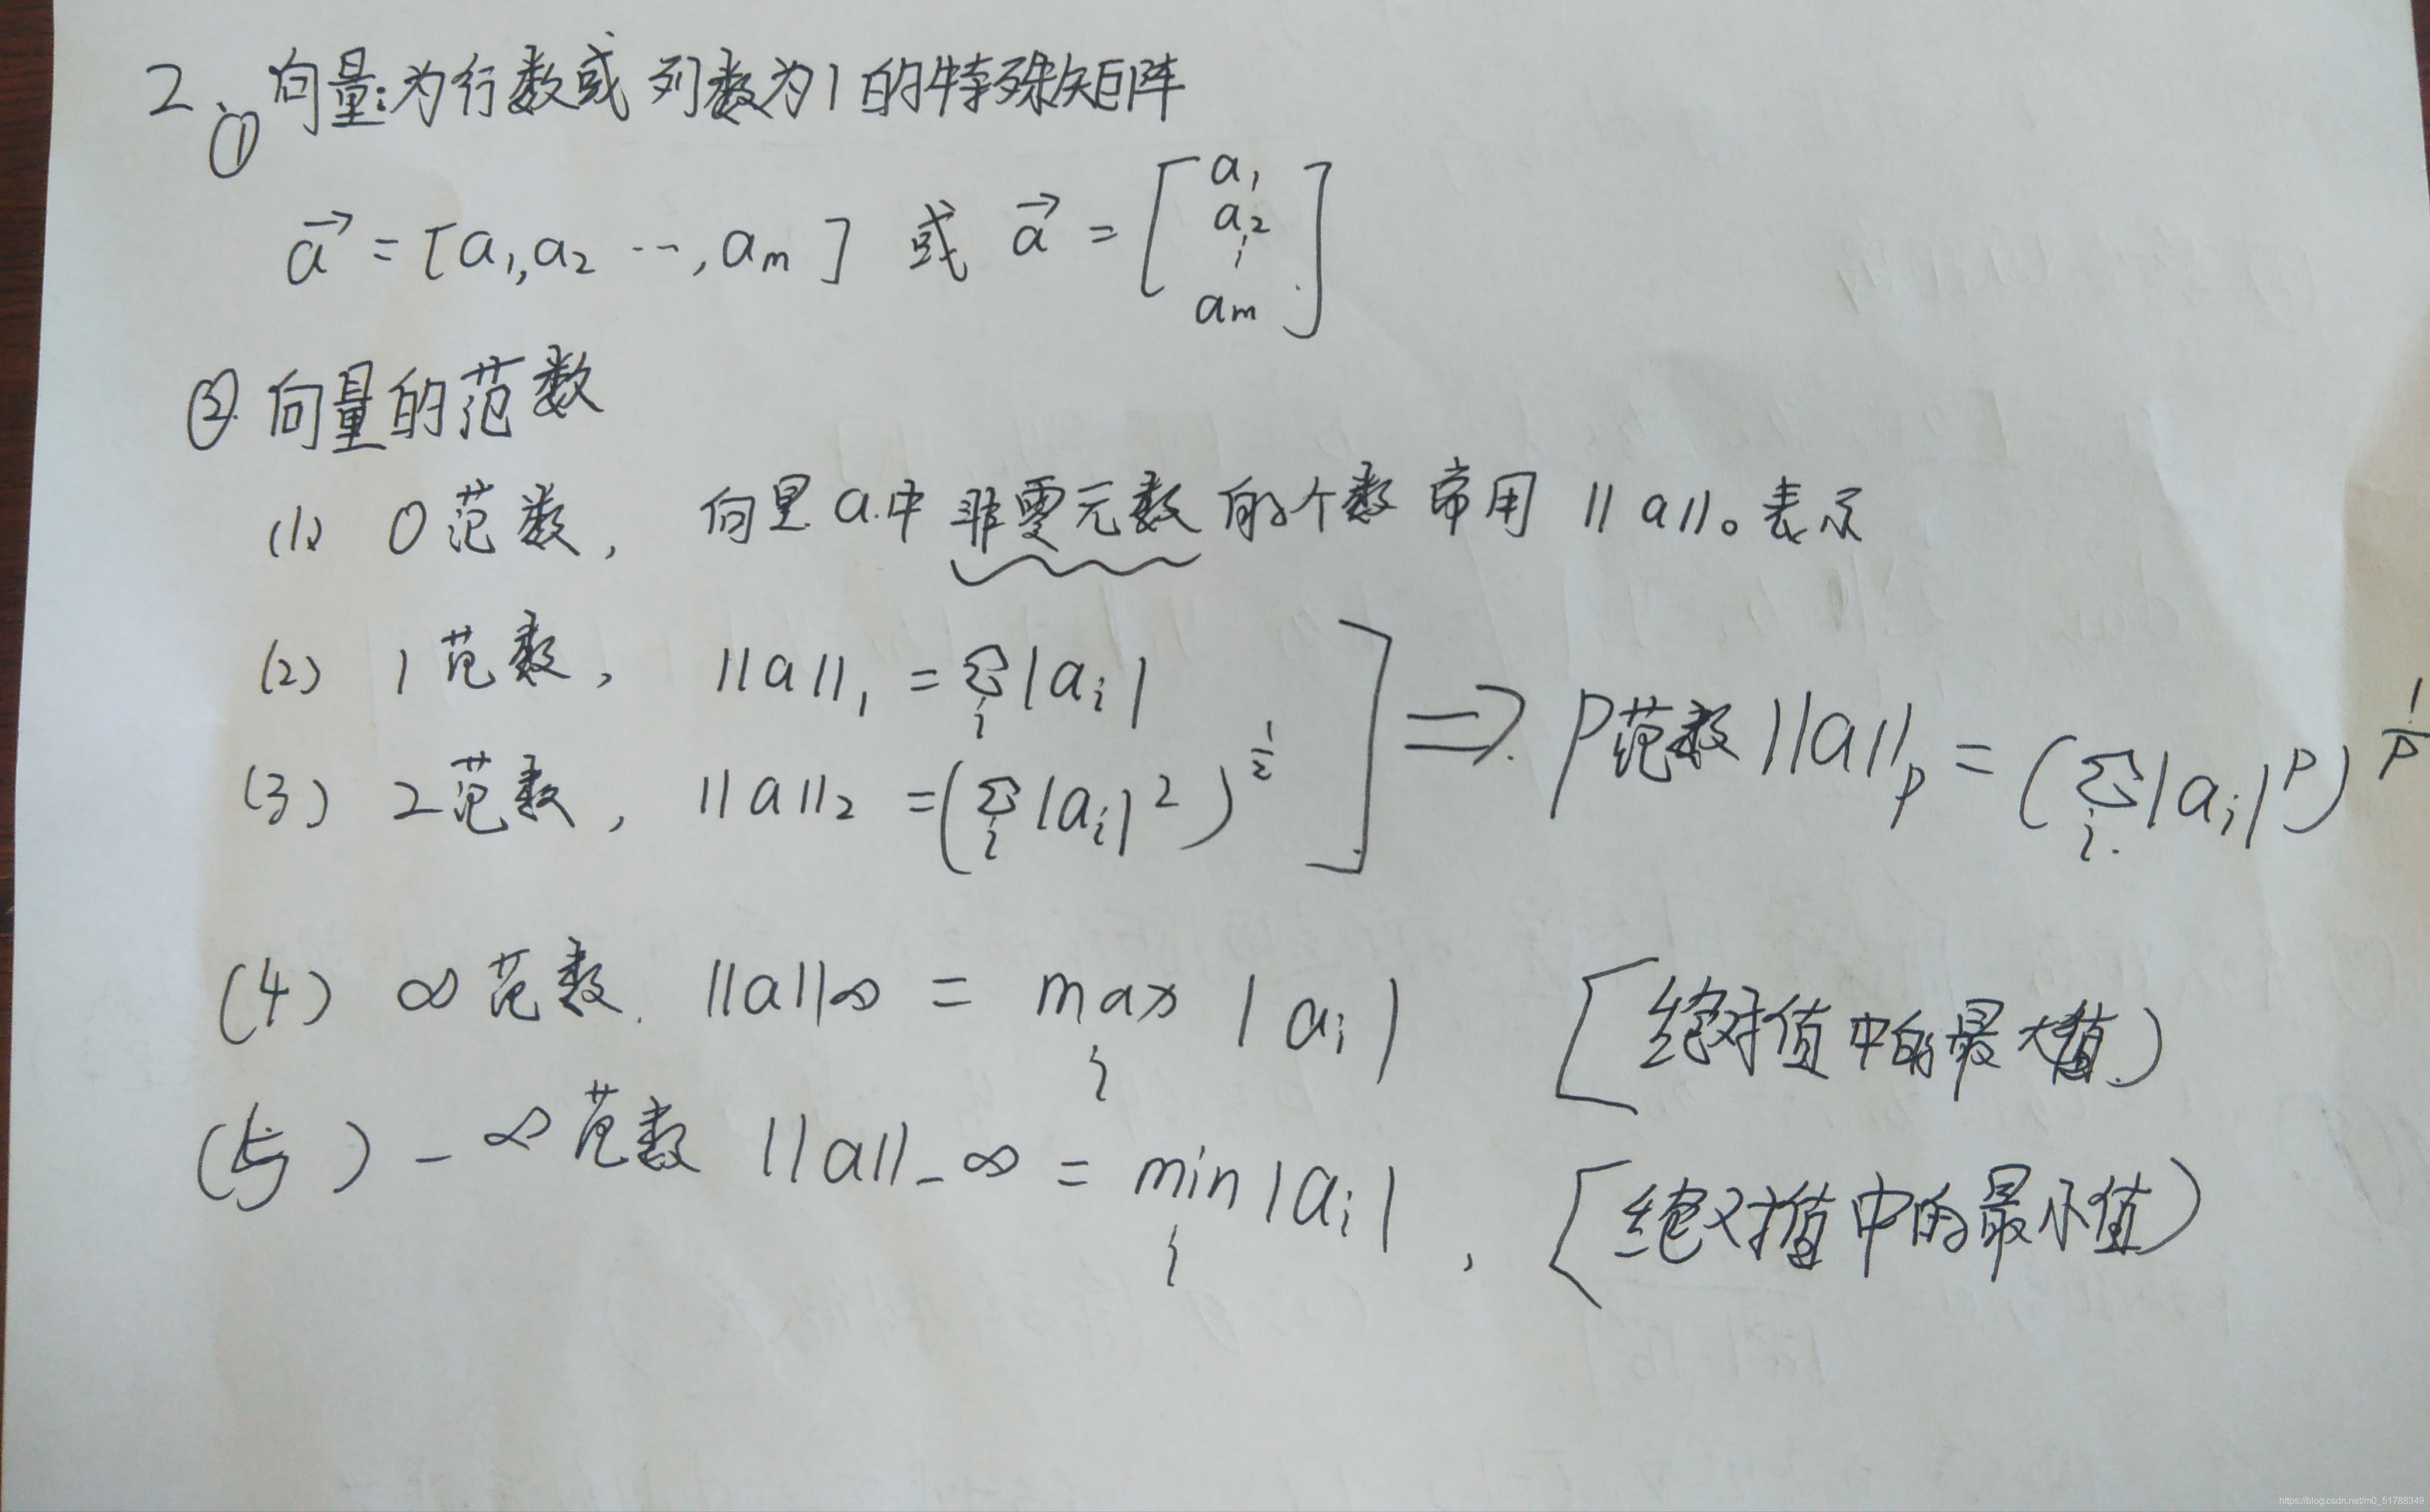 2、① 向量:为行数或列数为1的特殊矩阵
a⃗ = [a₁,a₂ …,aₘ] 或 a⃗ = [a₁ a₂ ⋮ aₘ]
② 向量的范数
(1) 0范数, 向量a中非零元数的个数 常用 ||a||₀表示
(2) 1范数, ||a||₁ = ∑ᵢ|aᵢ|
(3) 2范数, ||a||₂ = (∑ᵢ|aᵢ|²)^(1/2) ] ⇒ P范数||a||ₚ = (∑ᵢ|aᵢ|^p)^(1/p)
(4) ∞范数. ||a||∞ = maxᵢ |aᵢ| [绝对值中的最大值)
(5) -∞范数 ||a||-∞ = minᵢ|aᵢ|, [绝对值中的最小值)
https://blog.csdn.net/m0_51788349